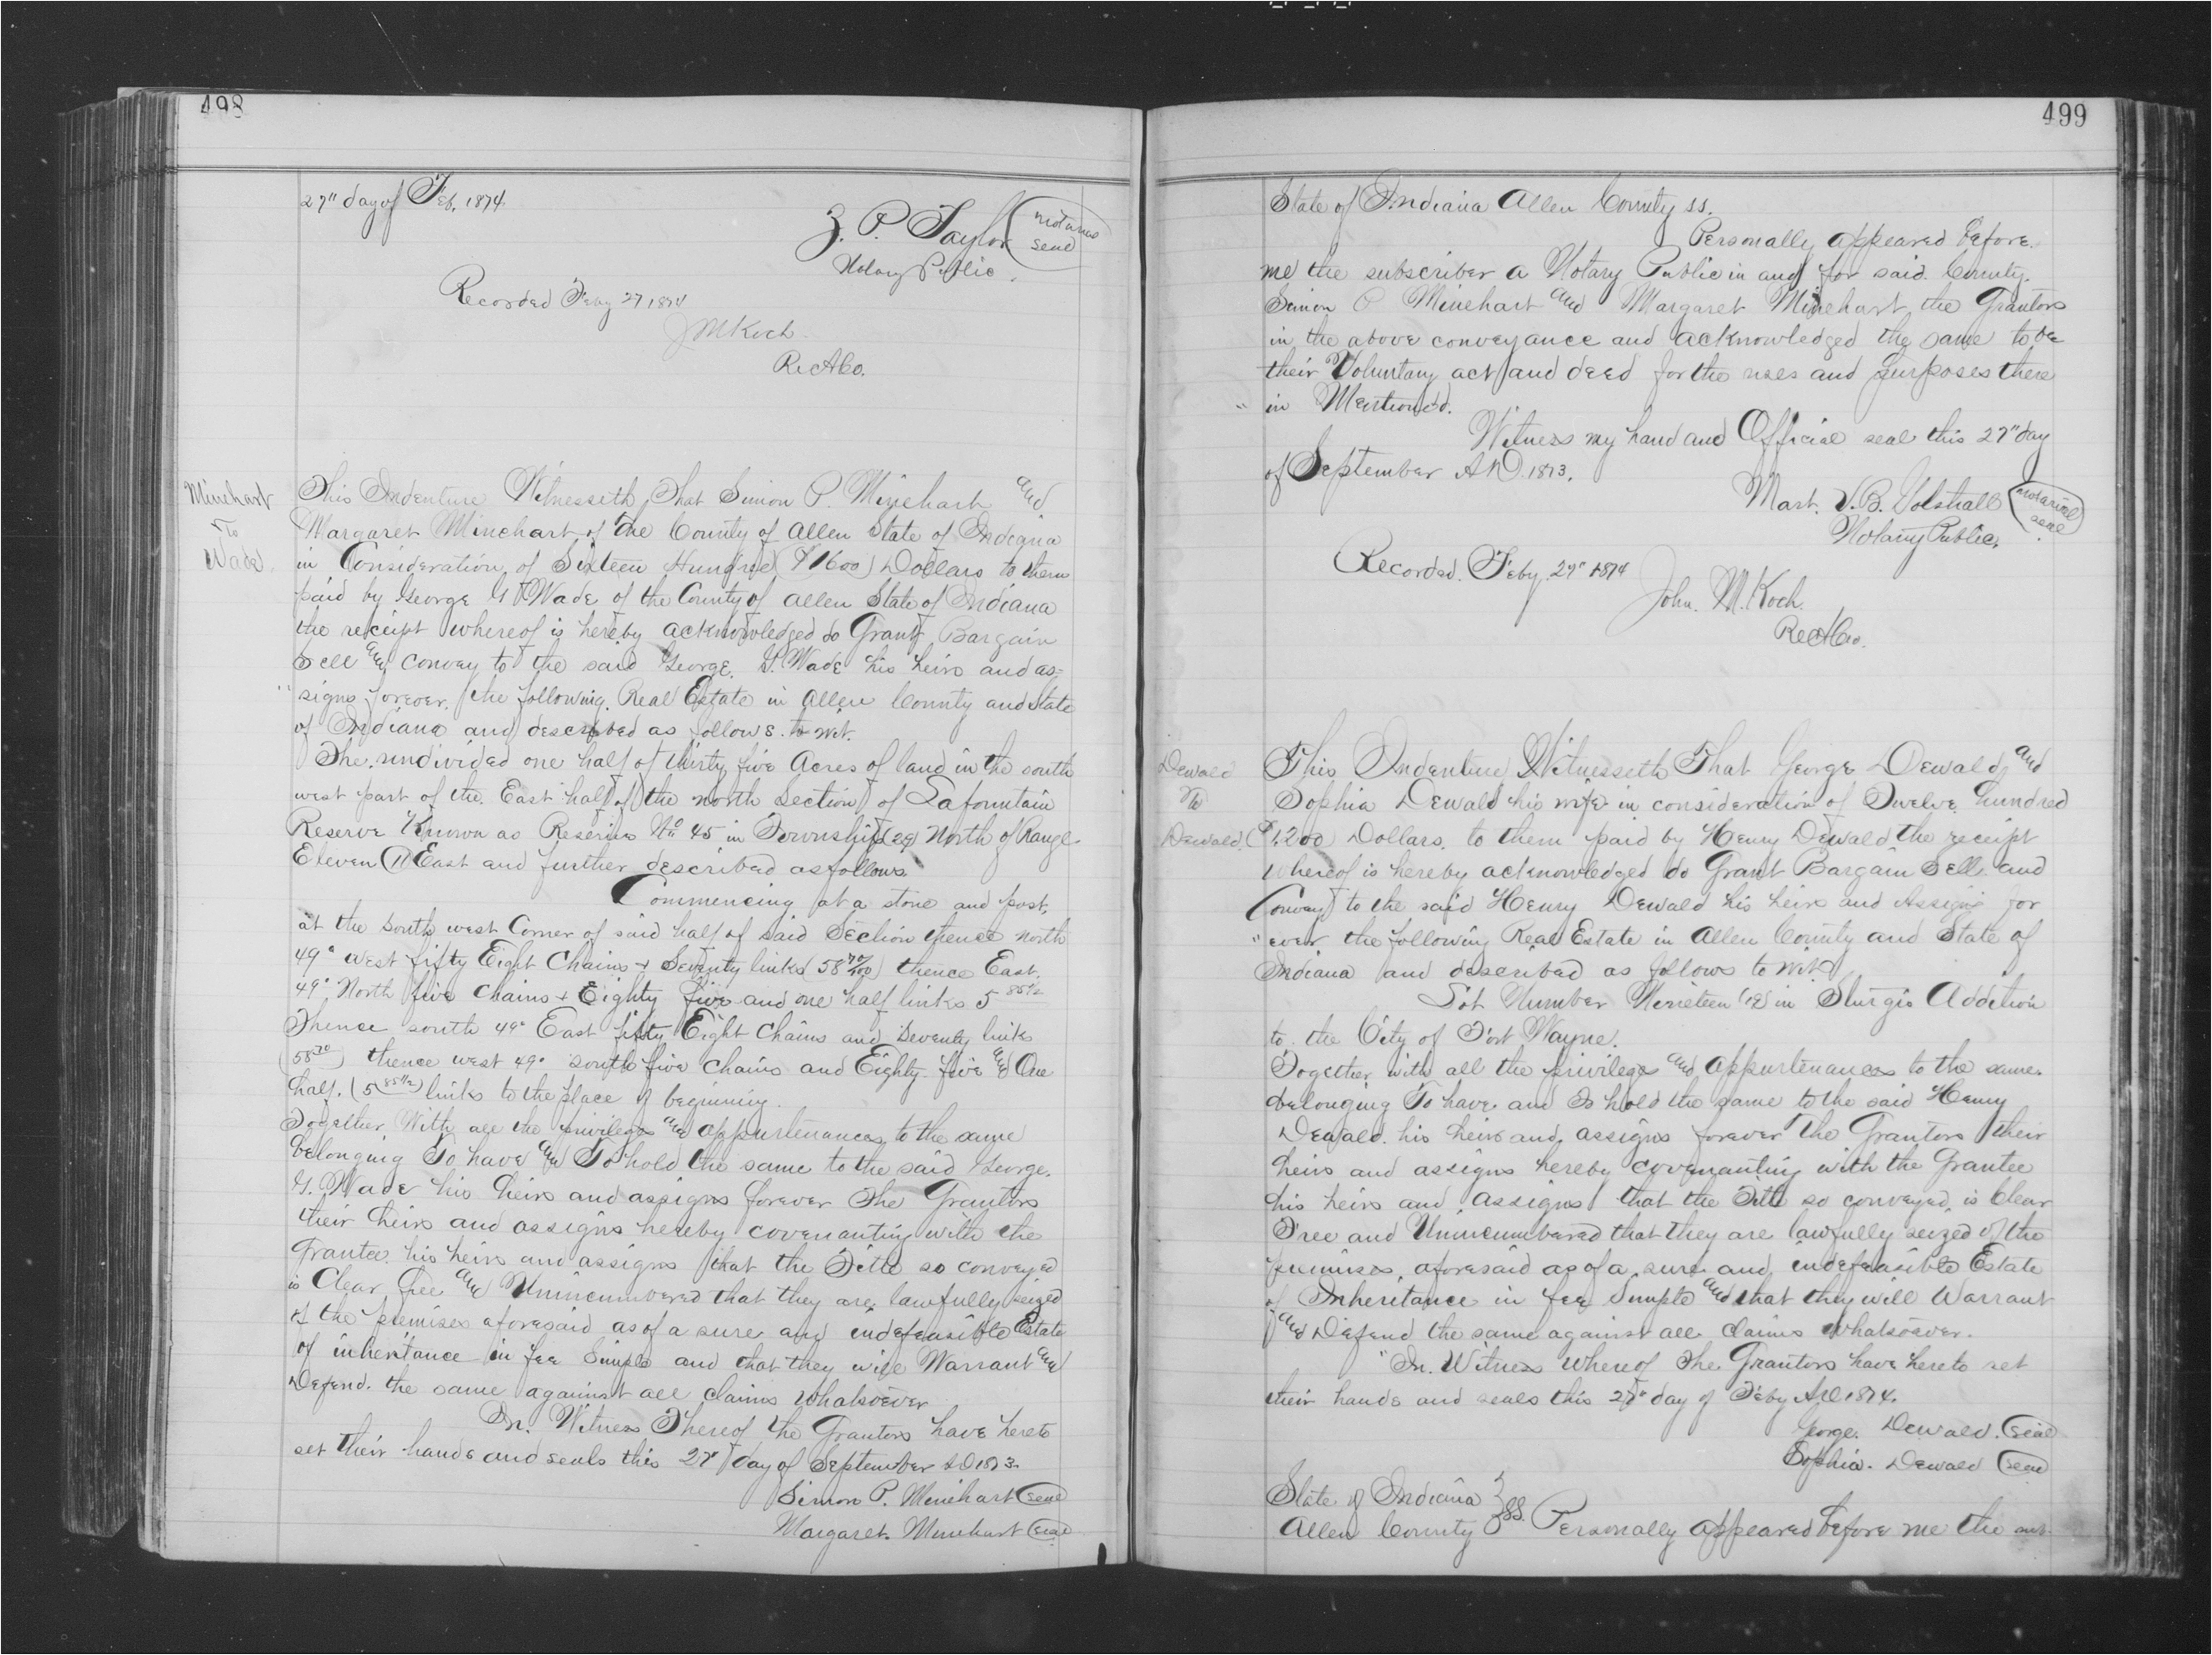 498
27" day of Feb. 1874.
Z. P. Taylor
Notary Public.
seal
Recorded Feby 27 1874
J M Koch.
Rec A Co.
Minehart
To
Wade.
This Indenture Witnesseth, That Simon P. Minehart and
Margaret Minehart of the County of Allen State of Indiana
in Consideration of Sixteen Hundred ($1600) Dollars to them
paid by George G Wade of the County of Allen State of Indiana
the receipt whereof is hereby acknowledged do Grant Bargain
Sell and convey to the said George. G. Wade his heirs and as=
"signs forever. the following. Real Estate in Allen County and State
of Indiana and described as follows. to wit.
The undivided one half of thirty five Acres of land in the south
west part of the East half of the north Section of Lafountain
Reserve Known as Reserve No 45 in Township (29) North of Range
Eleven (11) East and further described as follows
Commencing at a stone and post,
at the South west Corner of said half of said Section thence north
49° west fifty Eight Chains + Seventy links (58 70/100) thence East.
49° North five chains + Eighty five and one half links 5 85½
Thence south 49° East fifty Eight Chains and Seventy links
(58 70) thence west 49° south five chains and Eighty five and One
half. (5 85½) links to the place of beginning.
Together With all the privileges and appurtenances to the same
belonging To have and To hold the same to the said George.
G. Wade his heirs and assigns forever The Grantors
their heirs and assigns hereby covenanting with the
Grantee his heirs and assigns that the Title so conveyed
is Clear, Free and Unincumbered that they are lawfully seized
of the premises aforesaid as of a sure and indefeasible Estate
of inheritance in fee Simple and that they will Warrant and
Defend. the same against all claims whatsoever
In. Witness Thereof the Grantors have hereto
set their hands and seals this 27" day of September AD 1873.
Simon P. Minehart seal
Margaret. Minehart seal
499
State of Indiana Allen County ss.
Personally appeared before.
me the subscriber a Notary Public in and for said County.
Simon P Minehart and Margaret Minehart the Grantors
in the above conveyance and acknowledged the same to be
their Voluntary act and deed for the uses and purposes there
" in Mentioned.
Witness my hand and Official seal this 27" day
of September AD. 1873.
Mart. V. B.
Notary Public.
notarial
seal
Recorded. Feby. 27" 1874
John. M. Koch.
Rec A Co.
Dewald
To
Dewald.
This Indenture Witnesseth That George Dewald and
Sophia Dewald his wife in consideration of Twelve hundred
($1,200) Dollars. to them paid by Henry Dewald the receipt
whereof is hereby acknowledged do Grant Bargain Sell and
Convey to the said Henry Dewald his heirs and Assigns for
"ever the following Real Estate in Allen County and State of
Indiana and described as follows to wit
Lot Number Nineteen (19) in Sturgis Addition
to the City of Fort Wayne.
Together with all the privileges and appurtenances to the same.
belonging To have and To hold the same to the said Henry
Dewald. his heirs and assigns forever the Grantors their
heirs and assigns hereby covenanting with the Grantee
his heirs and assigns that the Title so conveyed, is Clear
Free and Unincumbered that they are lawfully seized of the
premises, aforesaid as of a sure and indefeasible Estate
of Inheritance in fee Simple and that they will Warrant
and Defend the same against all claims whatsoever.
"In. Witness Whereof The Grantors have hereto set
their hands and seals this 27" day of Feby AD 1874.
George. Dewald. seal
Sophia. Dewald seal
State of Indiana
Allen County } SS. Personally appeared before me the